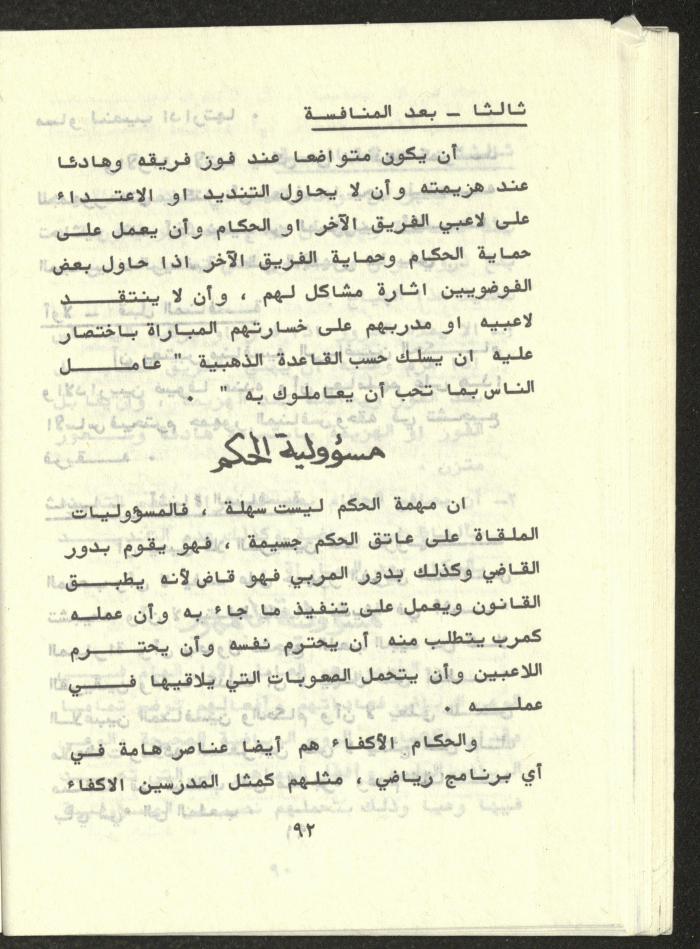 ثالثا ـ بعد المنافسة
أن يكون متواضعا عند فوز فريقه وهادئا
عند هزيمته وأن لا يحاول التنديد او الاعتداء
على لاعبي الفريق الآخر او الحكام وأن يعمل على
حماية الحكام وحماية الفريق الآخر اذا حاول بعض
الفوضويين اثارة مشاكل لهم ، وأن لا ينتقد
لاعبيه او مدربهم على خسارتهم المباراة باختصار
عليه ان يسلك حسب القاعدة الذهبية " عامل
الناس بما تحب أن يعاملوك به " .
مسؤولية الحكم
ان مهمة الحكم ليست سهلة ، فالمسؤوليات
الملقاة على عاتق الحكم جسيمة ، فهو يقوم بدور
القاضي وكذلك بدور المربي فهو قاض لأنه يطبق
القانون ويعمل على تنفيذ ما جاء به وأن عمله
كمرب يتطلب منه أن يحترم نفسه وأن يحترم
اللاعبين وأن يتحمل الصعوبات التي يلاقيها في
عمله .
والحكام الأكفاء هم أيضا عناصر هامة في
أي برنامج رياضي ، مثلهم كمثل المدرسين الاكفاء
٩٢